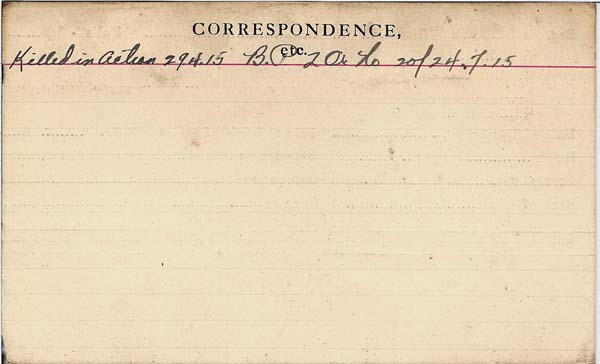 CORRESPONDENCE,
etc.
Killed in action 29.4.15 B. P 2 O. No 20 of 24.7.15